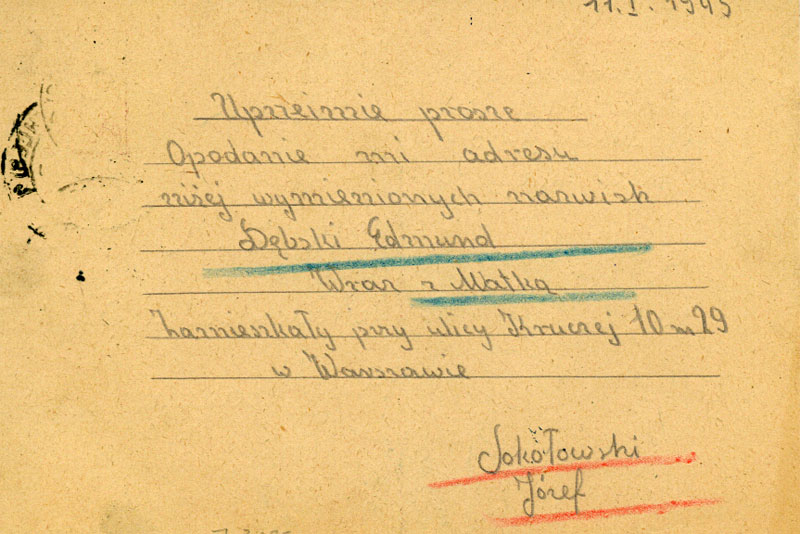 11.I.1945
Uprzeimie prosze
Opodanie mi adresu
niżej wymienionych nazwisk
Dębski Edmund
Wraz z Matką
Zamieszkały przy ulicy Kruczej 10 m 29
w Warszawie
Sokołowski
Józef